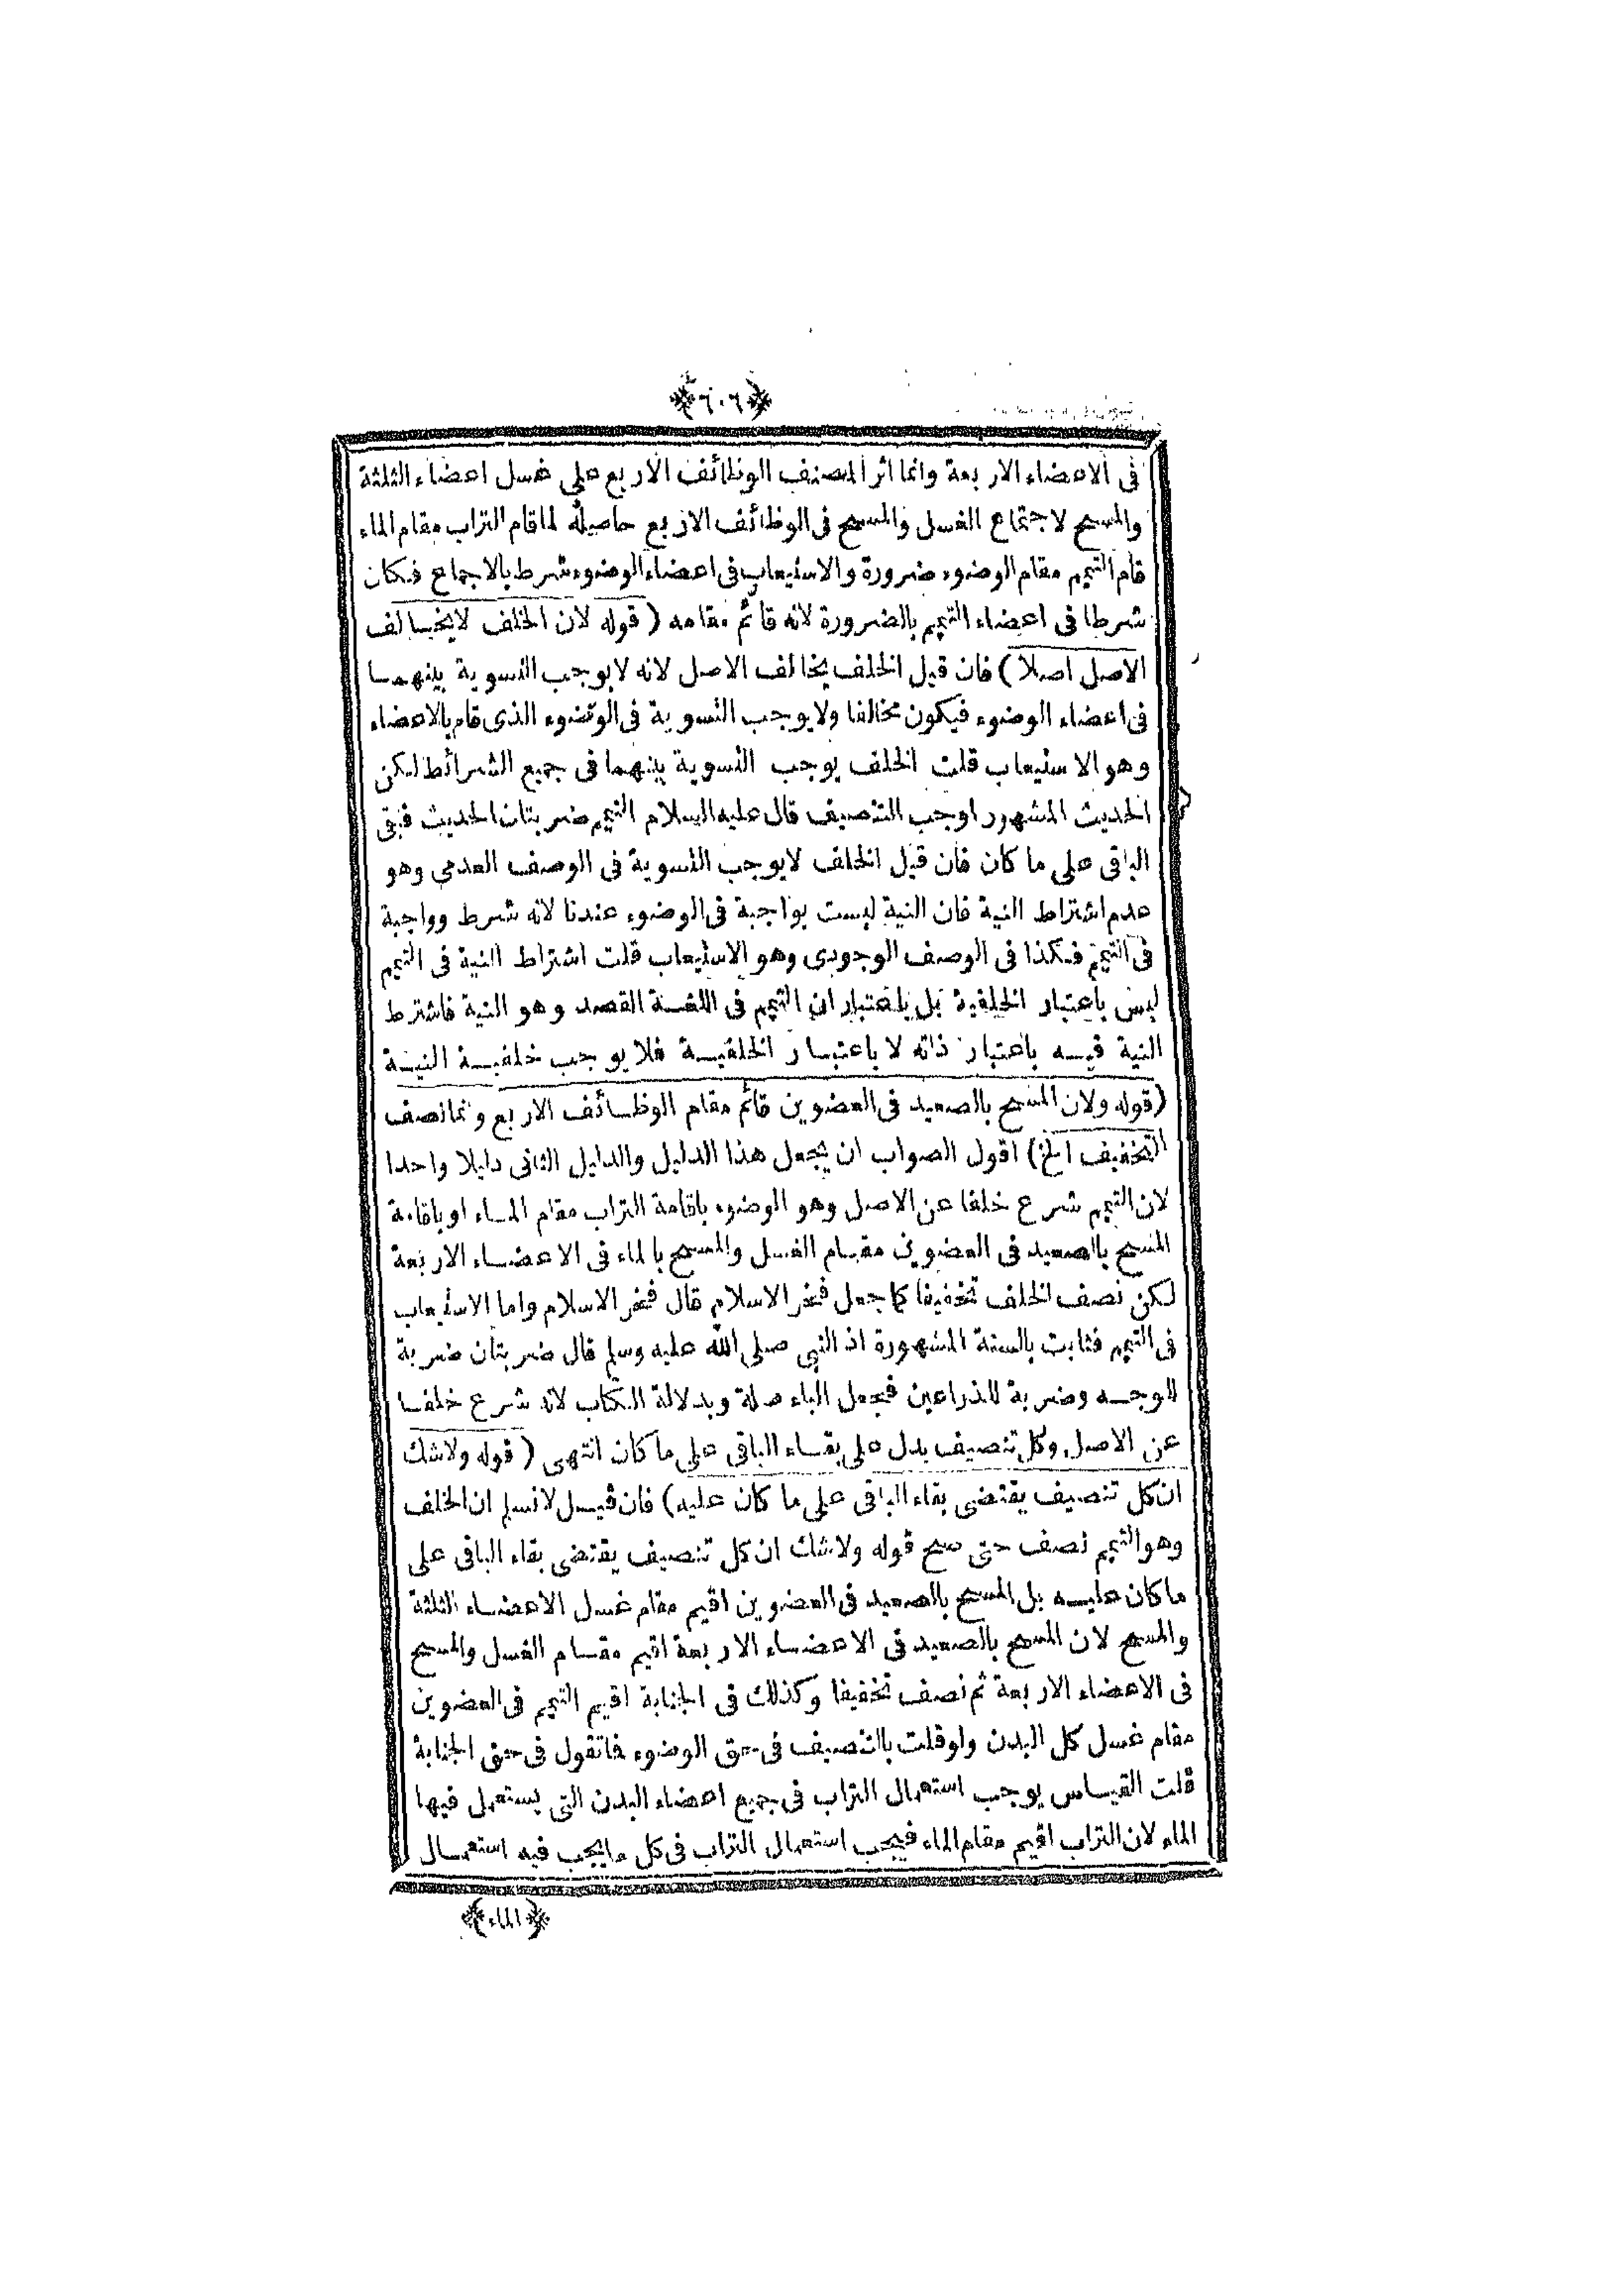 ﴿٦٠٦﴾
فى الاعضاء الاربعة وانما اثر المصنف الوظائف الاربع على غسل اعضاء الثلثة
والمسح لاجتماع الغسل والمسح فى الوظائف الاربع حاصله لما قام التراب مقام الماء
قام التيمم مقام الوضوء ضرورة والاستيعاب فى اعضاء الوضوء شرط بالاجماع فكان
شرطا فى اعضاء التيمم بالضرورة لانه قائم مقامه (قوله لان الخلف لايخالف
الاصل اصلا) فان قيل الخلف يخالف الاصل لانه لايوجب التسوية بينهما
فى اعضاء الوضوء فيكون مخالفا ولايوجب التسوية فى الوضوء الذى قام بالاعضاء
وهو الاستيعاب قلت الخلف يوجب التسوية بينهما فى جميع الشرائط لكن
الحديث المشهور اوجب التنصيف قال عليه السلام التيمم ضربتان الحديث فبقى
الباقى على ما كان فان قيل الخلف لايوجب التسوية فى الوصف العدمى وهو
عدم اشتراط النية فان النية ليست بواجبة فى الوضوء عندنا لانه شرط وواجبة
فى التيمم فكذا فى الوصف الوجودى وهو الاستيعاب قلت اشتراط النية فى التيمم
ليس باعتبار الخلفية بل باعتبار ان التيمم فى اللغة القصد وهو النية فاشترط
النية فيه باعتبار ذاته لا باعتبار الخلفية فلا يوجب خلفية النية
(قوله ولان المسح بالصعيد فى العضوين قائم مقام الوظائف الاربع وانما نصف
التخفيف الخ) اقول الصواب ان يجعل هذا الدليل والدليل الثانى دليلا واحدا
لان التيمم شرع خلفا عن الاصل وهو الوضوء باقامة التراب مقام الماء او باقامة
المسح بالصعيد فى العضوين مقام الغسل والمسح بالماء فى الاعضاء الاربعة
لكن نصف الخلف تخفيفا كما جعل فخر الاسلام قال فخر الاسلام واما الاستيعاب
فى التيمم فثابت بالسنة المشهورة اذ النبى صلى الله عليه وسلم قال ضربتان ضربة
للوجه وضربة للذراعين فجعل الباء صلة وبدلالة الكتاب لانه شرع خلفا
عن الاصل وكل تنصيف يدل على بقاء الباقى على ما كان انتهى (قوله ولاشك
ان كل تنصيف يقتضى بقاء الباقى على ما كان عليه) فان قيل لانسلم ان الخلف
وهو التيمم نصف حتى صح قوله ولاشك ان كل تنصيف يقتضى بقاء الباقى على
ما كان عليه بل المسح بالصعيد فى العضوين اقيم مقام غسل الاعضاء الثلثة
والمسح لان المسح بالصعيد فى الاعضاء الاربعة اقيم مقام الغسل والمسح
فى الاعضاء الاربعة ثم نصف تخفيفا وكذلك فى الجنابة اقيم التيمم فى العضوين
مقام غسل كل البدن ولو قلت بالتنصيف فى حق الوضوء فاتقول فى حق الجنابة
قلت القياس يوجب استعمال التراب فى جميع اعضاء البدن التى يستعمل فيها
الماء لان التراب اقيم مقام الماء فيجب استعمال التراب فى كل مايجب فيه استعمال
﴿الماء﴾